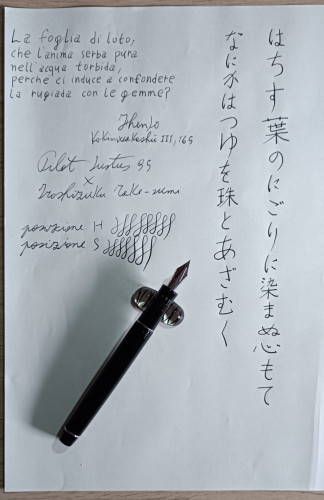 La foglia di loto,
che l'anima serba pura
nell'acqua torbida,
perche ci induce a confondere
la rugiada con le gemme?
Henjo
Kokinwakashū III, 165
Pilot Justus 95
x
Iroshizuku Take-sumi
posizione H
posizione S
はちす葉のにごりに染まぬ心もて
なにかはつゆを珠とあざむく